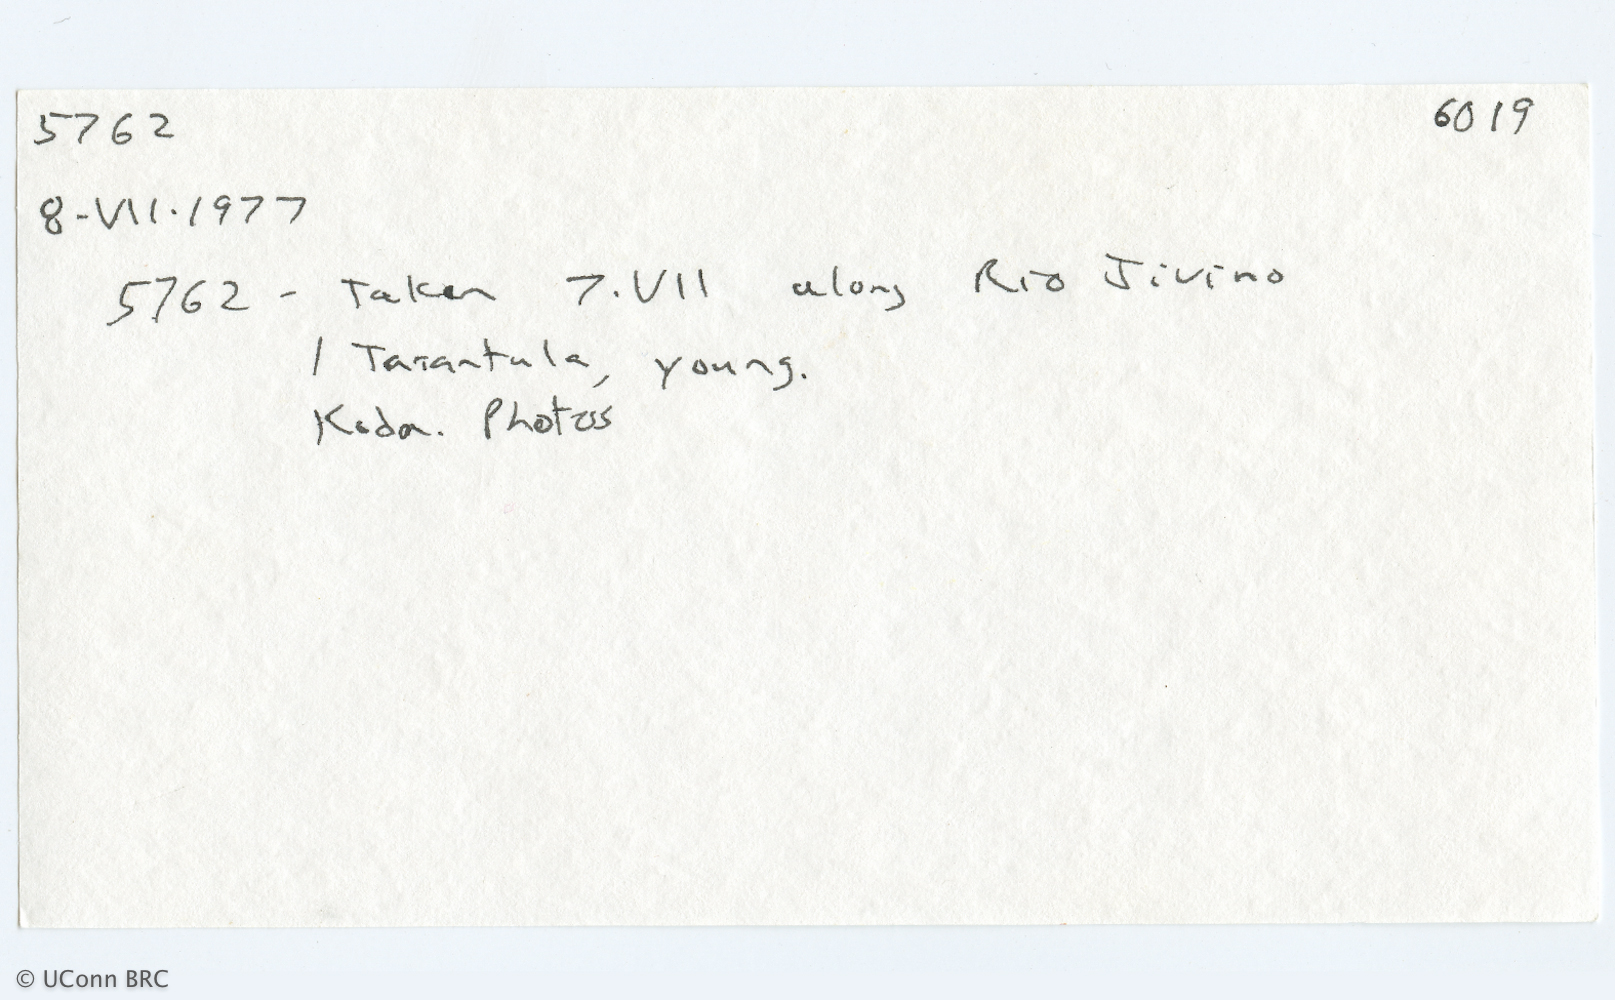 5762 6019
8-VII.1977
5762 - Taken 7.VII along Rio Jivino
1 Tarantula, young.
Koda. Photos
© UConn BRC